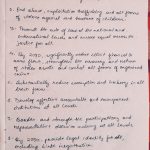 2. End abuse, exploitation trafficking and all forms
of violence against and torture of children.
3. Promote the rule of law at the national and
international levels and ensure equal access to
justice for all.
4. By 2030, significantly reduce illicit financial &
arms flows, strengthen the recovery and return
of stolen assets and combat all forms of organized
crime.
5. Substantially reduce corruption and bribery in all
their forms.
6. Develop effective accountable and transparent
institutions at all levels.
7. Broaden and strengthen the participation
8. By 2030, provide legal identity for all,
including birth registration.